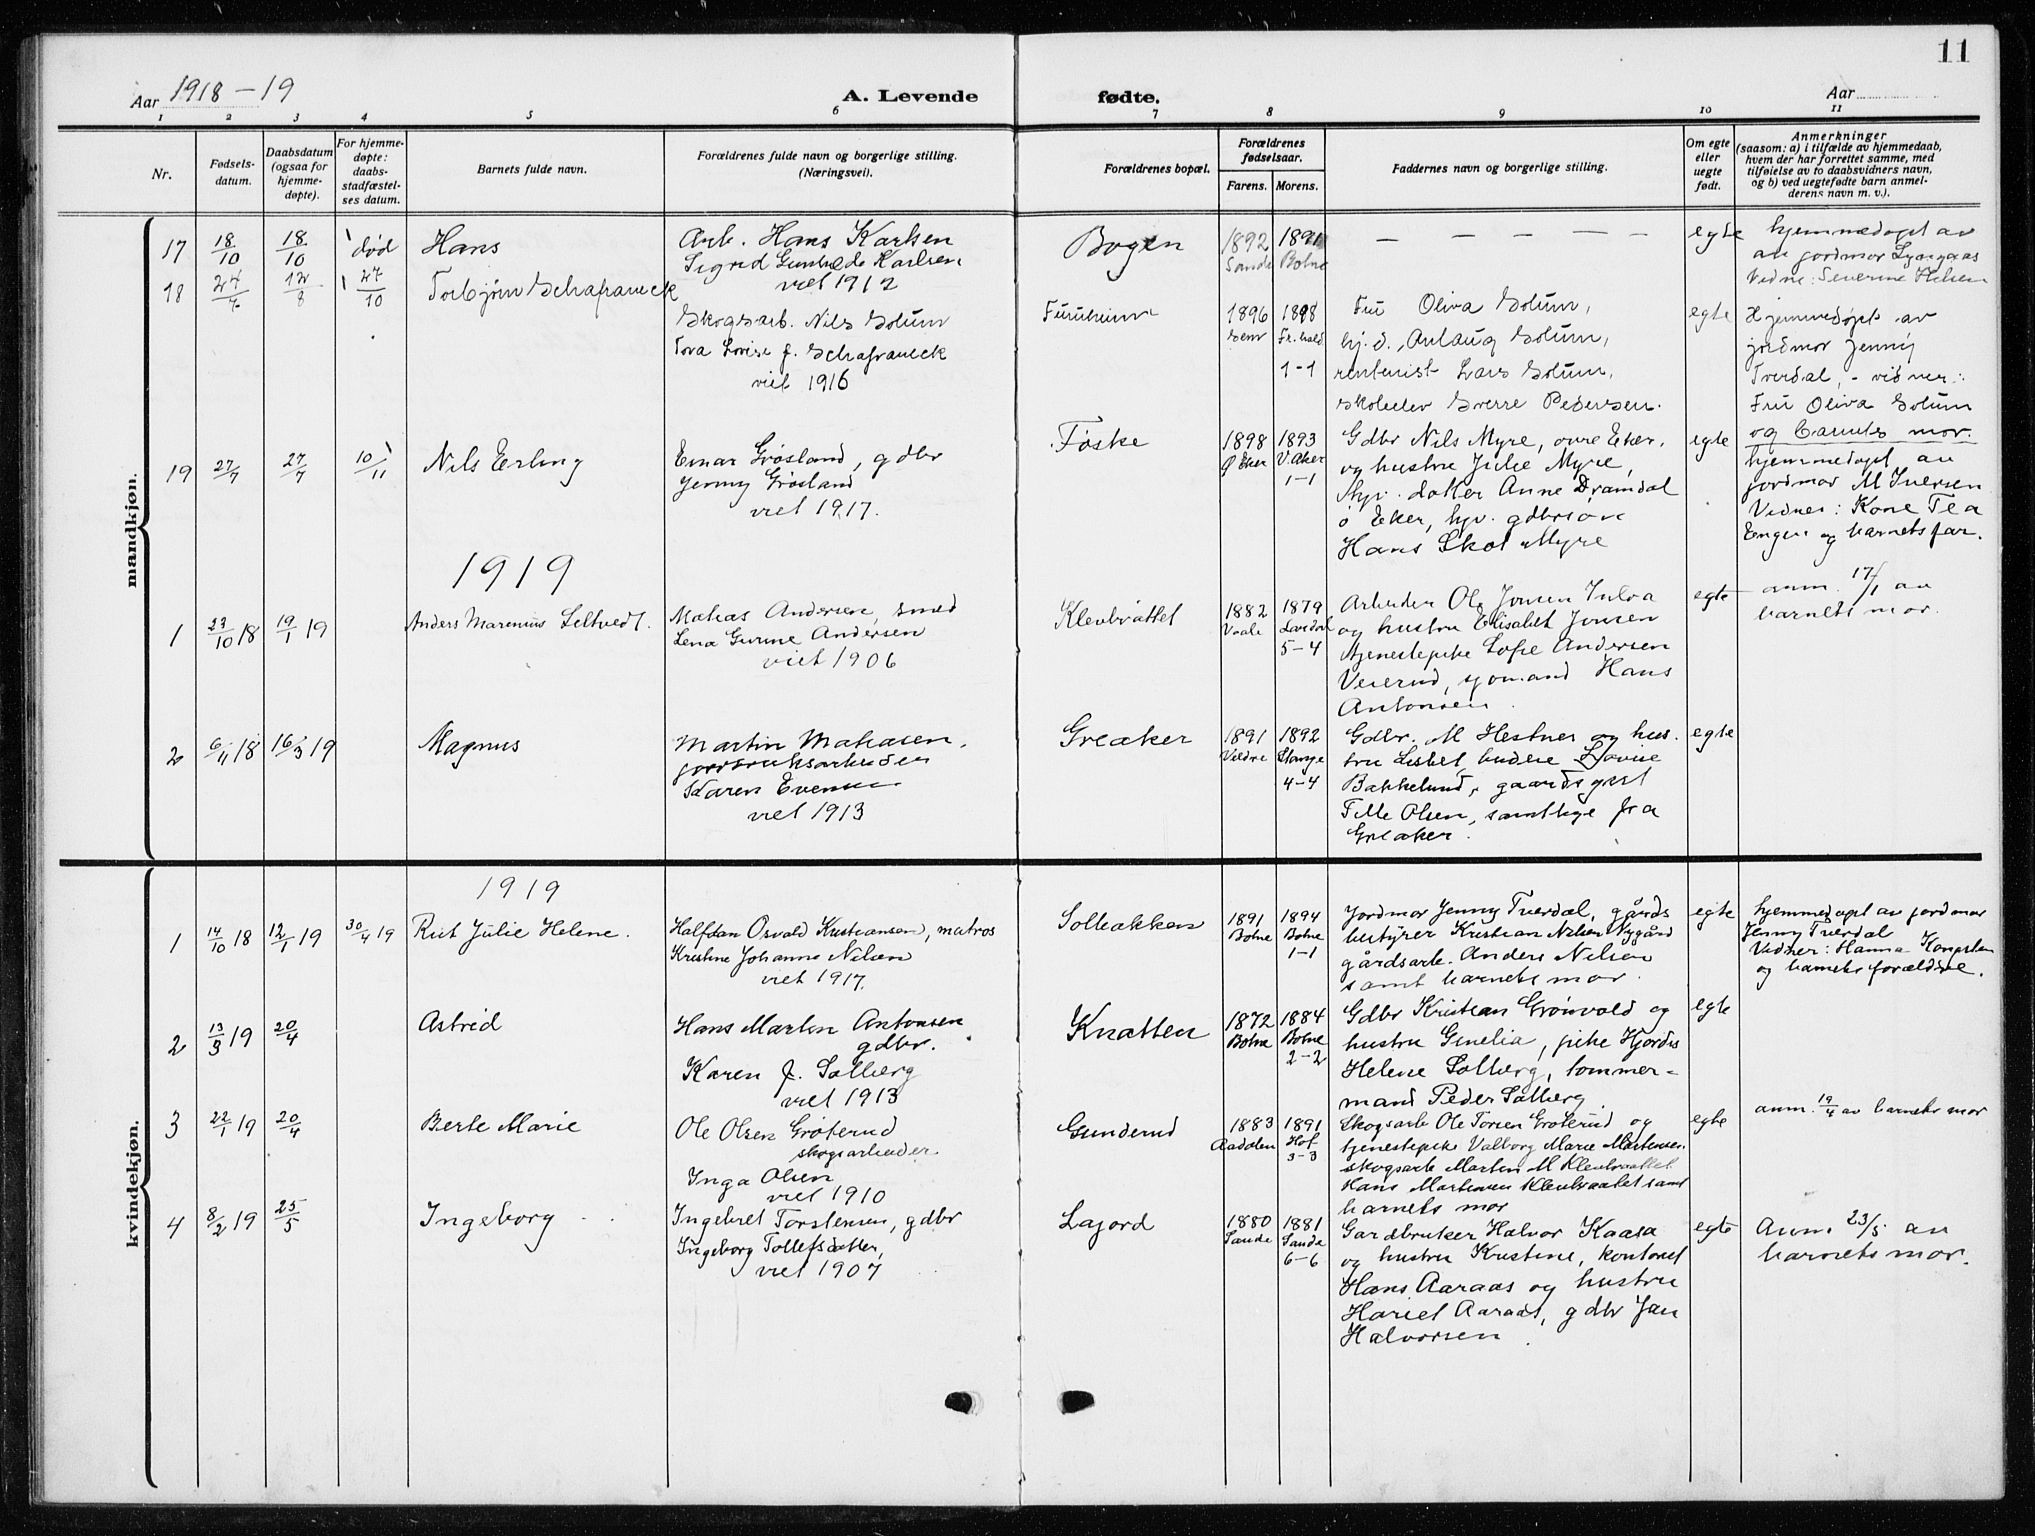 11
Aar 1918-19
A. Levende fødte.
Aar
1 2 3 4 5 6 7 8 9 10 11
Nr.
Fødsels-
datum.
Daabsdatum
(ogsaa for
hjemme-
døpte).
For hjemme-
døpte:
daabs-
stadfæstel-
ses datum.
Barnets fulde navn.
Forældrenes fulde navn og borgerlige stilling.
(Næringsvei).
Forældrenes bopæl.
Forældrenes
fødselsaar.
Farens. Morens.
Faddernes navn og borgerlige stilling.
Om egte
eller
uegte
født.
Anmerkninger
(saasom: a) i tilfælde av hjemmedaab,
hvem der har forrettet samme, med
tilføielse av to daabsvidners navn,
og b) ved uegtefødte barn anmel-
derens navn m. v.).
mandkjøn.
17 18/10 18/10 død Hans
Arb. Hans Karlsen
Sigrid Karlsen
viet 1912
Bogen
1892 1891
Sande Botne
— — — — —
egte
hjemmedøpt av
jordmor
Vidne: Severine
18 12/8 27/10 Torbjørn Schafraneck
Skogsarb. Nils Solum
Tora Lovise f. Schafraneck
viet 1916
Furuheim
1896 1898
Fr.hald
1-1
Fru Oliva Solum,
hj.d. Aslaug Solum,
rentenist Lars Solum,
Skoleelev Sverre Pedersen.
egte
Hjemmedøpt av
jordmor Jenny
Tverdal, - vidner:
Fru Oliva Solum
og barnets mor.
19 27/7 27/7 10/11 Nils Erling
Einar Grøsland, gdbr
Jenny Grøsland
viet 1917.
Føske
1898 1893
Ø Eker V. Aker
1-1
Gdbr Nils Myre, øvre Eker,
og hustru Julie Myre,
hjv. datter Anne Dramdal
ø Eker, hjv. gdbrsøn
Hans Skot Myre
egte
hjemmedøpt av
jordmor M Iversen
Vidner: Kone Tea
Engen og barnets far.
1919
1 23/10 18 19/1 19 Anders Marenius Seltvedt.
Matias Andersen, smed
Lena Gurine Andersen
viet 1906
Klevbråttet
1882 1879
Vaale Lardal
5-4
Arbeider Ole Jonsen Tulva
og hustru Elisabet Jonsen
tjenestepike Sofie Andersen
Veierud, sjømand Hans
Antonsen
egte
anm. 17/1 av
barnets mor.
2 6/11 18 16/3 19 Magnus
Martin Matiasen,
jordbruksarbeider
Karen Evensen
viet 1913
Greaker
1891 1892
Veldre Stange
4-4
Gdbr. M Hestner og hus-
tru Lisbet, budeie Lovise
Bakkelund, gaardsgut
Tille Olsen, samtlige fra
Greaker.
egte
kvindekjøn.
1919
1 14/10 18 12/1 19 30/4 19 Rut Julie Helene.
Halfdan Osvald Kristiansen, matros
Kristine Johanne Nilsen
viet 1917.
Solbakken
1891 1894
Botne Botne
1-1
Jordmor Jenny Tverdal, gårds
bestyrer Kristian Nilsen Nygård
gårdsarb. Anders Nilsen
samt barnets mor.
egte
hjemmedøpt av jordmor
Jenny Tverdal
Vidner: Hanna
og barnets forældre.
2 13/3 19 20/4 Astrid
Hans Martin Antonsen
gdbr.
Karen f. Solberg
viet 1913
Knatten
1872 1884
Botne Botne
2-2
Gdbr Kristian Grønvold og
hustru Ginelia, pike Hjørdis
Helene Solberg, tømmer-
mand Peder Solberg
egte
3 22/1 19 20/4 Berte Marie
Ole Olsen Grøterud
skogsarbeider.
Inga Olsen
viet 1910
Gunderud
1883 1891
Aadalen Hof
3-3
Skogsarb Ole Torsen Grøterud og
tjenestepike Valborg Marie Martinsen
skogsarb Marten M Klevbraattet
Hans Martinsen Klevbraatet samt
barnets mor
egte
anm. 19/4 av barnets mor
4 8/2 19 25/5 Ingeborg
Ingebret Torstensen, gdbr
Ingeborg Tollefsdatter,
viet 1907
Lajord
1880 1881
Sande Sande
6-6
Gardbruker Halvor Kaasa
og hustru Kristine, kontorist
Hans Aaraas og hustru
Hariet Aaraas, gdbr Jan
Halvorsen
egte
Anm. 23/5 av
barnets mor.